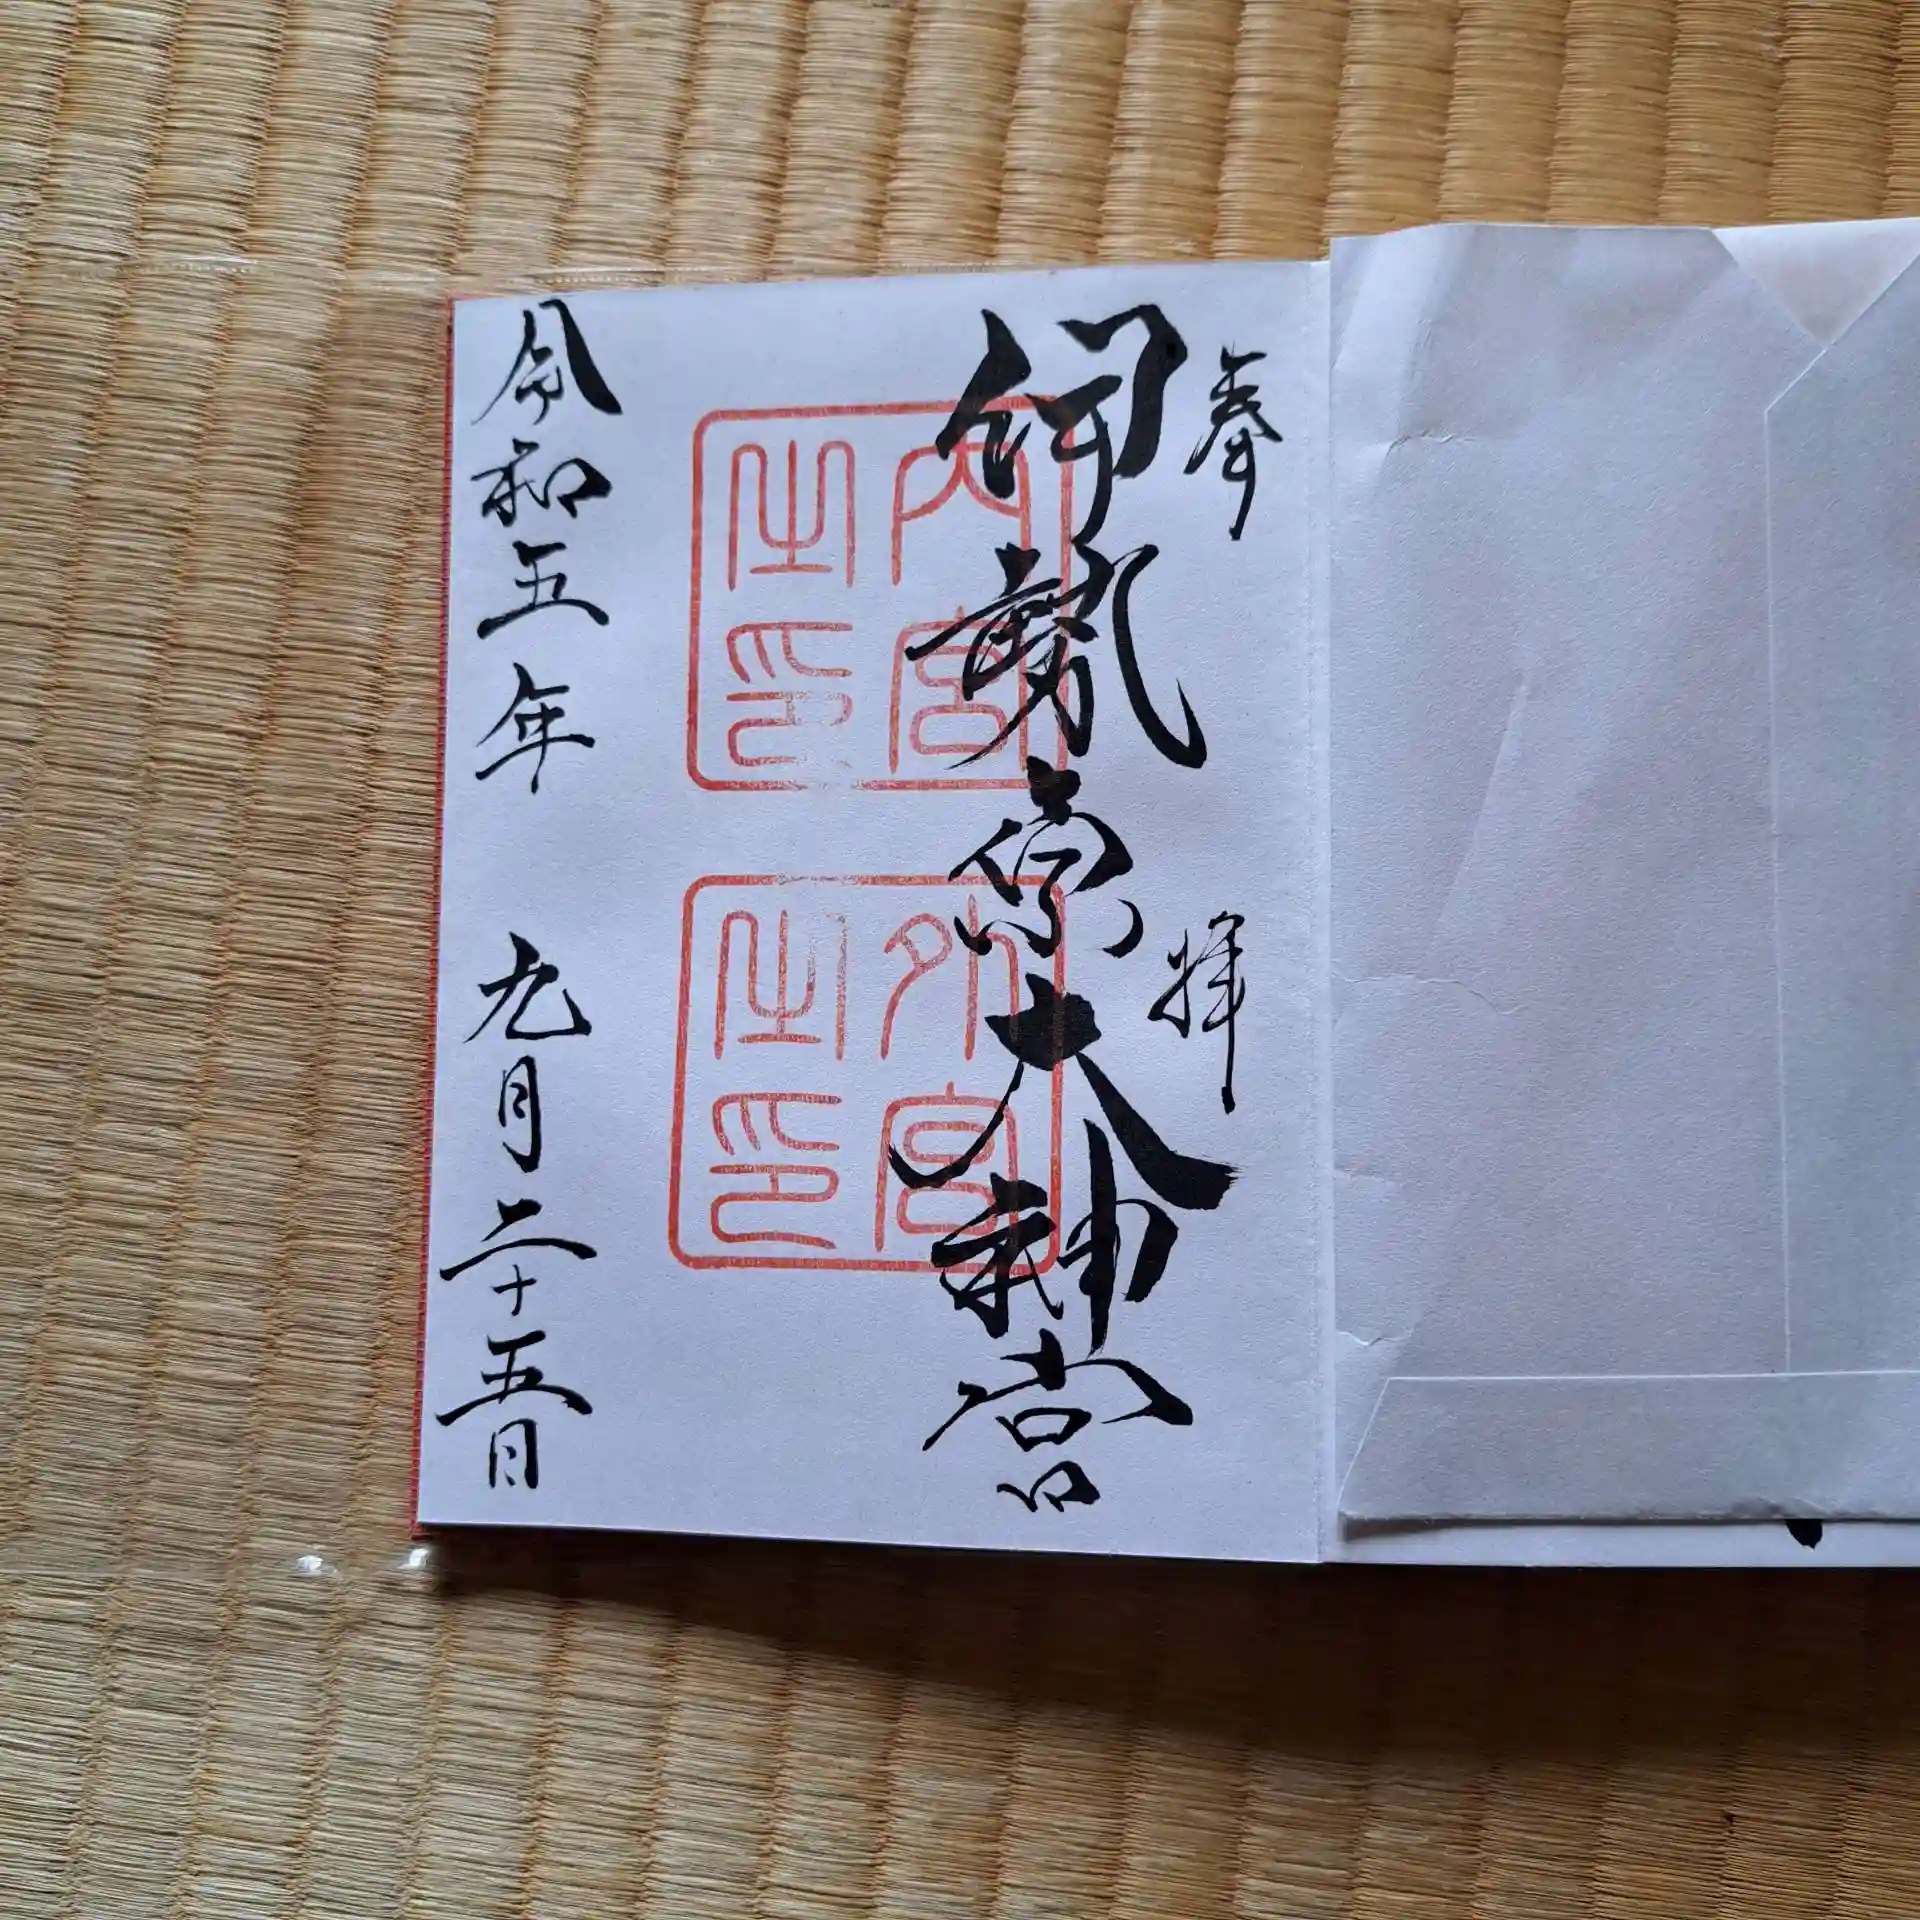 奉拝
伊勢原大神宮
内宮
之印
外宮
之印
令和五年 九月二十五日